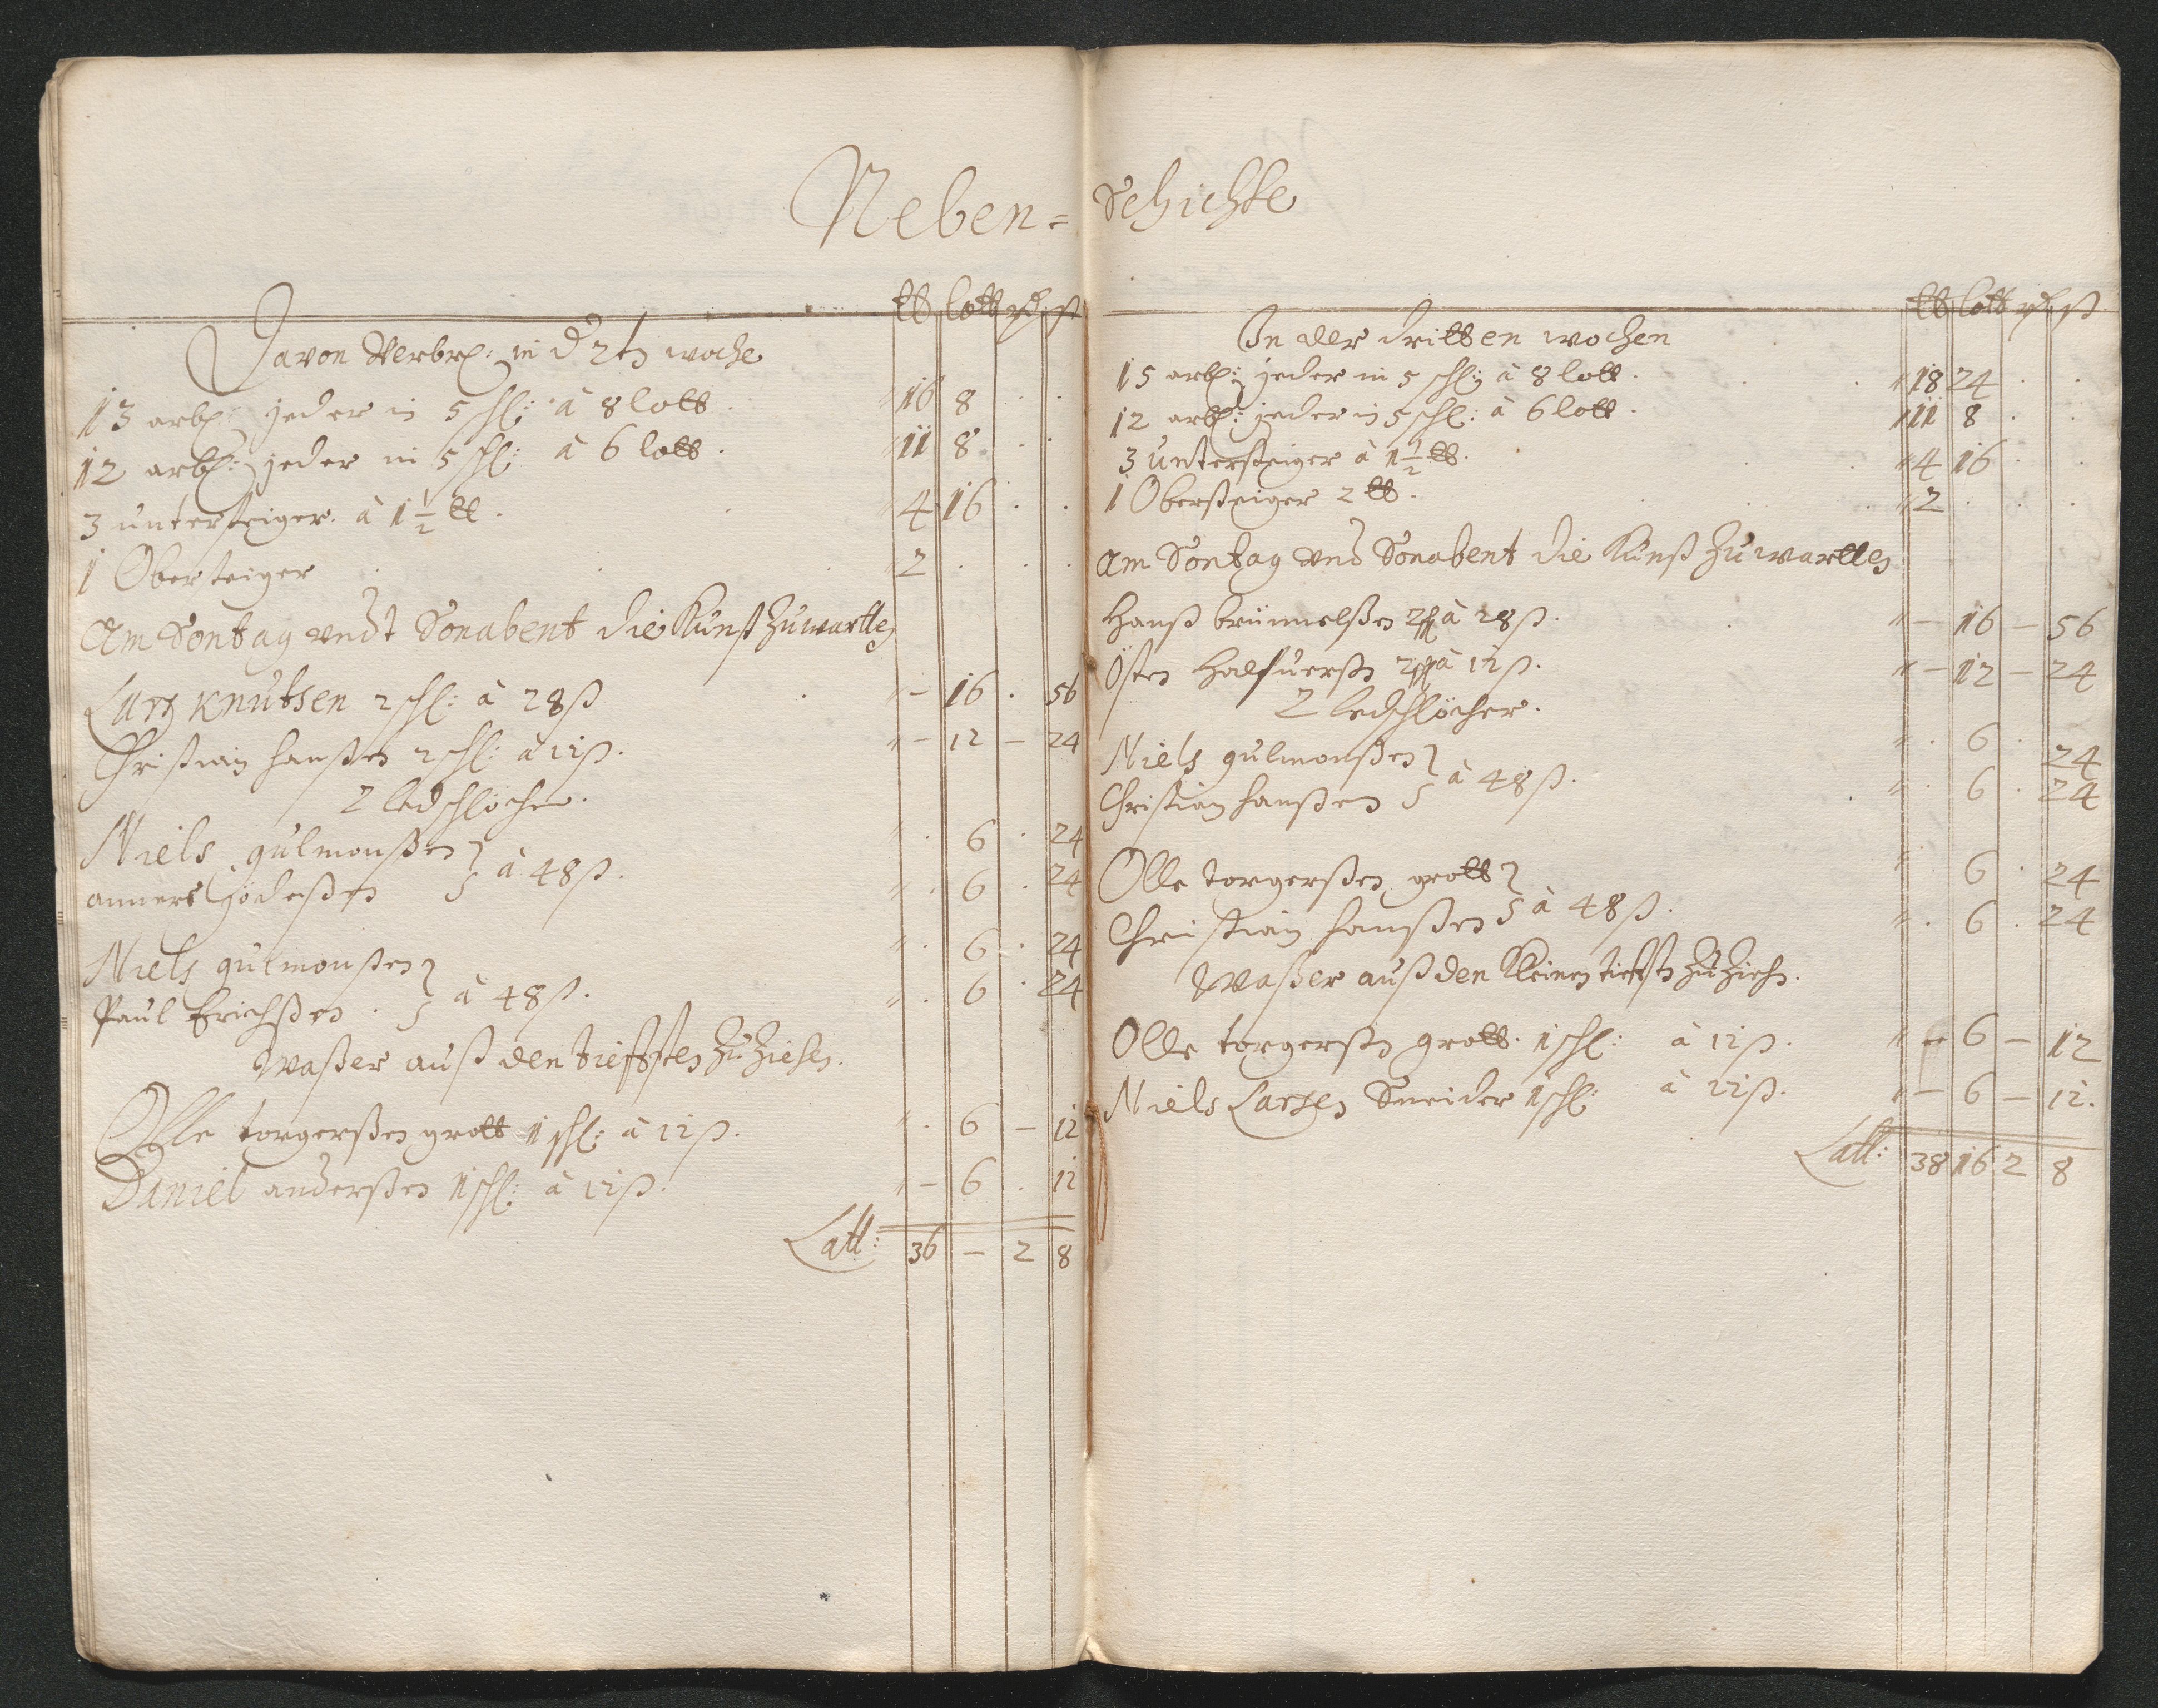 Neben=
℔ lott rd ß
Davon Verbr: in d 2tn woche
13 arb: jeder in 5 schl: à 8 lott 16 8
12 arb: jeder in 5 schl: à 6 lott 11 8
3 untersteiger à 1½ ℔ 4 16
1 Obersteiger 2
Am Sontag undt Sonabent die Kunst zuwartten
Lars Knutsen 2 schl: à 28 ß — 16 56
Christian hanßen 2 schl: à 12 ß — 12 — 24
2 ledschlöcher
Niels gulmonßen 6 24
anners jödeßen à 48 ß 6 24
Niels gulmonßen 6 24
Paul Erichßen à 48 ß 6 24
Waßer auß den tieffsten zu ziehen
Olle torgerßen grott 1 schl: à 12 ß 6 — 12
Daniel anderßen 1 schl: à 12 ß — 6 12
Latt: 36 — 2 8
Schichte
℔ lott rd ß
In der dritten wochen
15 arb: jeder in 5 schl: à 8 lott 18 24
12 arb: jeder in 5 schl: à 6 lott 11 8
3 untersteiger à 1½ ℔ 4 16
1 Obersteiger 2 ℔ 2
Am Sontag und Sonabent die Kunst zuwartten
Hanß 2 schl à 28 ß — 16 — 56
Östen Halfuerßen 2 schl à 12 ß — 12 — 24
2 ledschlöcher
Niels gulmonßen 6 24
Christian hanßen à 48 ß 6 24
Olle torgerßen grott 6 24
Christian hanßen à 48 ß 6 24
Waßer auß den kleinen tieffsten zu ziehen
Olle torgerßen grott 1 schl: à 12 ß — 6 — 12
Niels Larsen Sneider 1 schl: à 12 ß — 6 — 12
Latt: 38 16 2 8